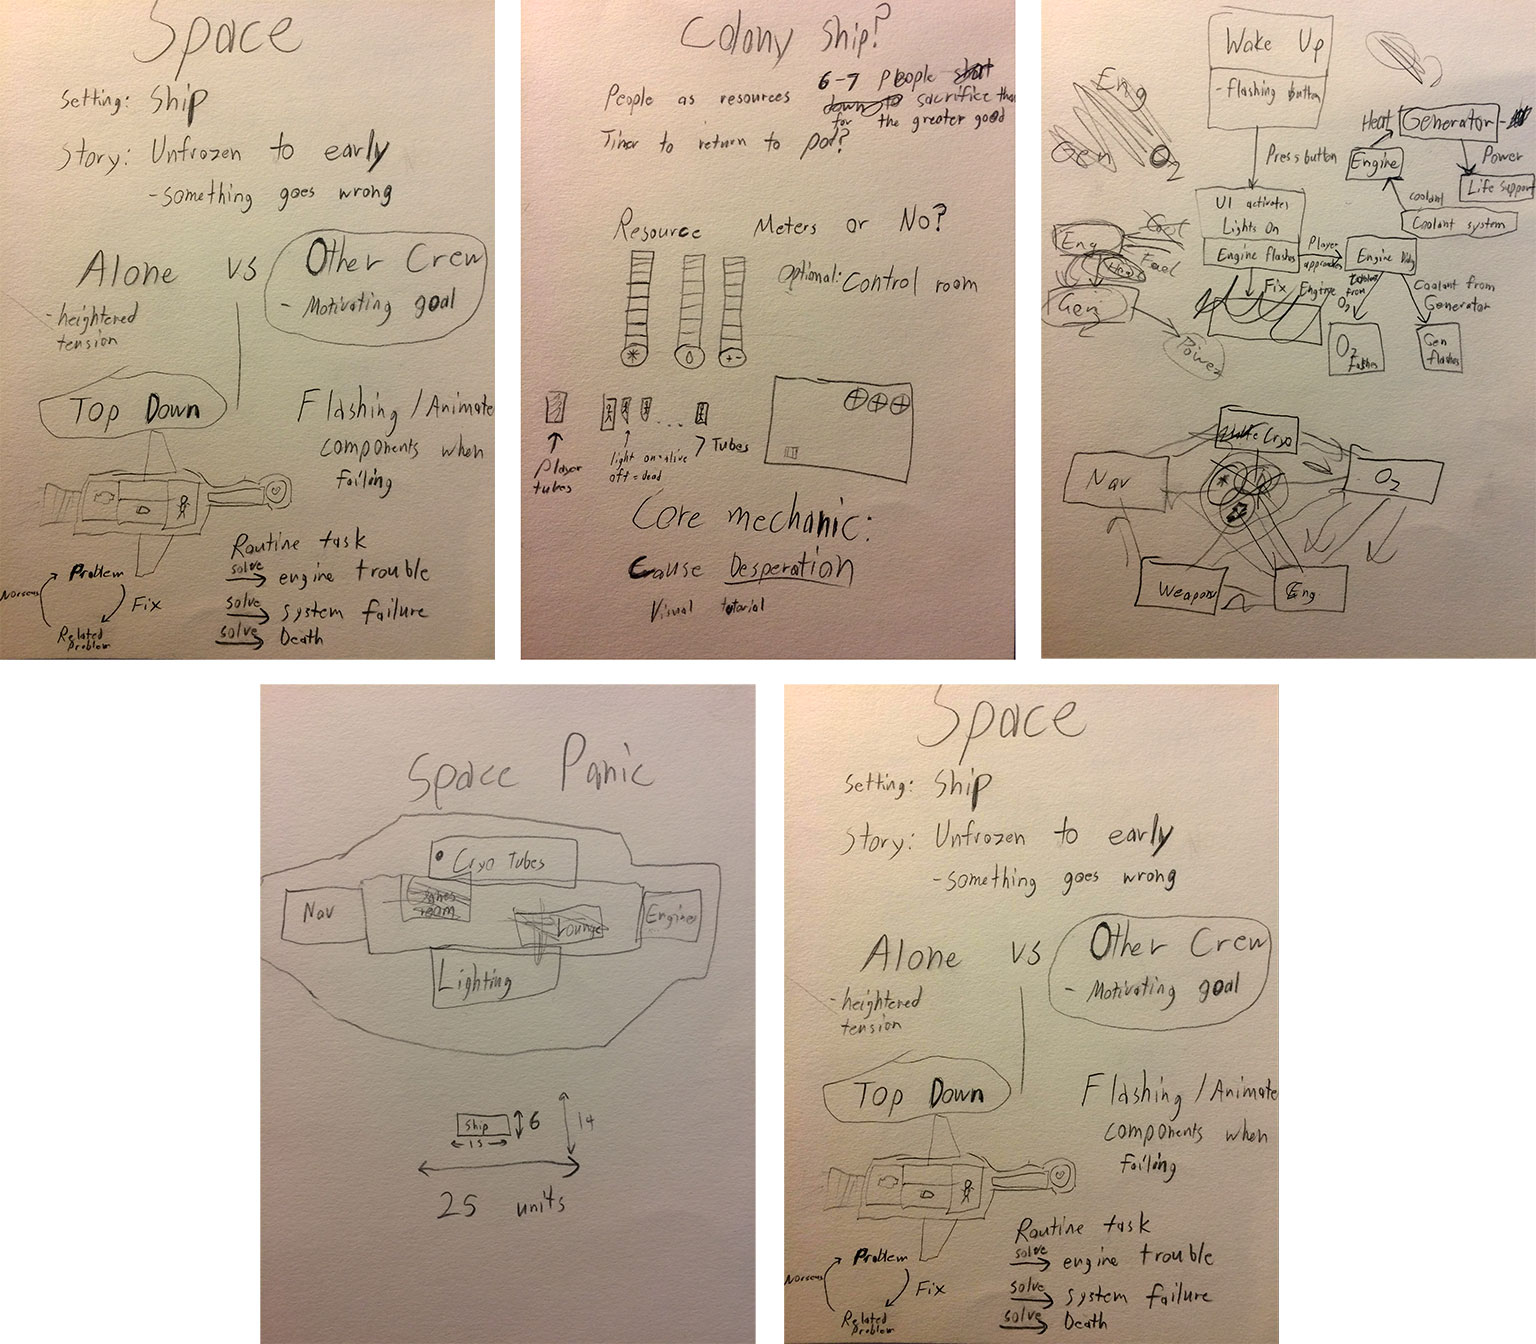 Space
Setting: Ship
Story: Unfrozen to early
-something goes wrong
Alone vs Other Crew
- Motivating goal
-heightered
tension
Top Down
Flashing / Animate
components when
failing
Routine task
solve engine trouble
solve system failure
solve Death
Problem
Fix
Related
Problem
Colony Ship?
People as resources
6-7 people
sacrifice
for the greater good
Timer to return to pod?
Resource Meters or No?
optional: Control room
Player
tubes
light on=alive
off=dead
7 Tubes
Core mechanic:
Cause Desperation
Visual tutorial
Wake Up
-flashing button
Press button
UI activates
Lights On
Engine flashes
Player
approaches
Engine
Fix Engine
Coolant from
Generator
O2
flashes
Gen
flashes
Eng
Gen
O2
Heat
Generator
Engine
Power
Life Support
coolant
Coolant system
Eng
Fuel
Heat
Gen
Power
Cryo
Nav
O2
Weapons
Eng
Space Panic
Cryo Tubes
Nav
room
Lounge
Engines
Lighting
Ship
6
15
14
25 units
Space
Setting: Ship
Story: Unfrozen to early
-something goes wrong
Alone vs Other Crew
- Motivating goal
-heightered
tension
Top Down
Flashing / Animate
components when
failing
Routine task
solve engine trouble
solve system failure
solve Death
Problem
Fix
Related
Problem